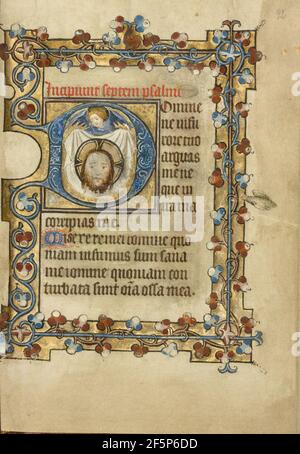 92
Incipiunt septem psalmi
Domine
ne in fu
rore tuo
arguas
me ne
que in
ira tua
corripias me.
Miserere mei domine quo
niam infirmus sum sana
me domine quoniam con
turbata sunt oīa ossa mea.
alamy
Image ID: 2F5P6DD
www.alamy.com